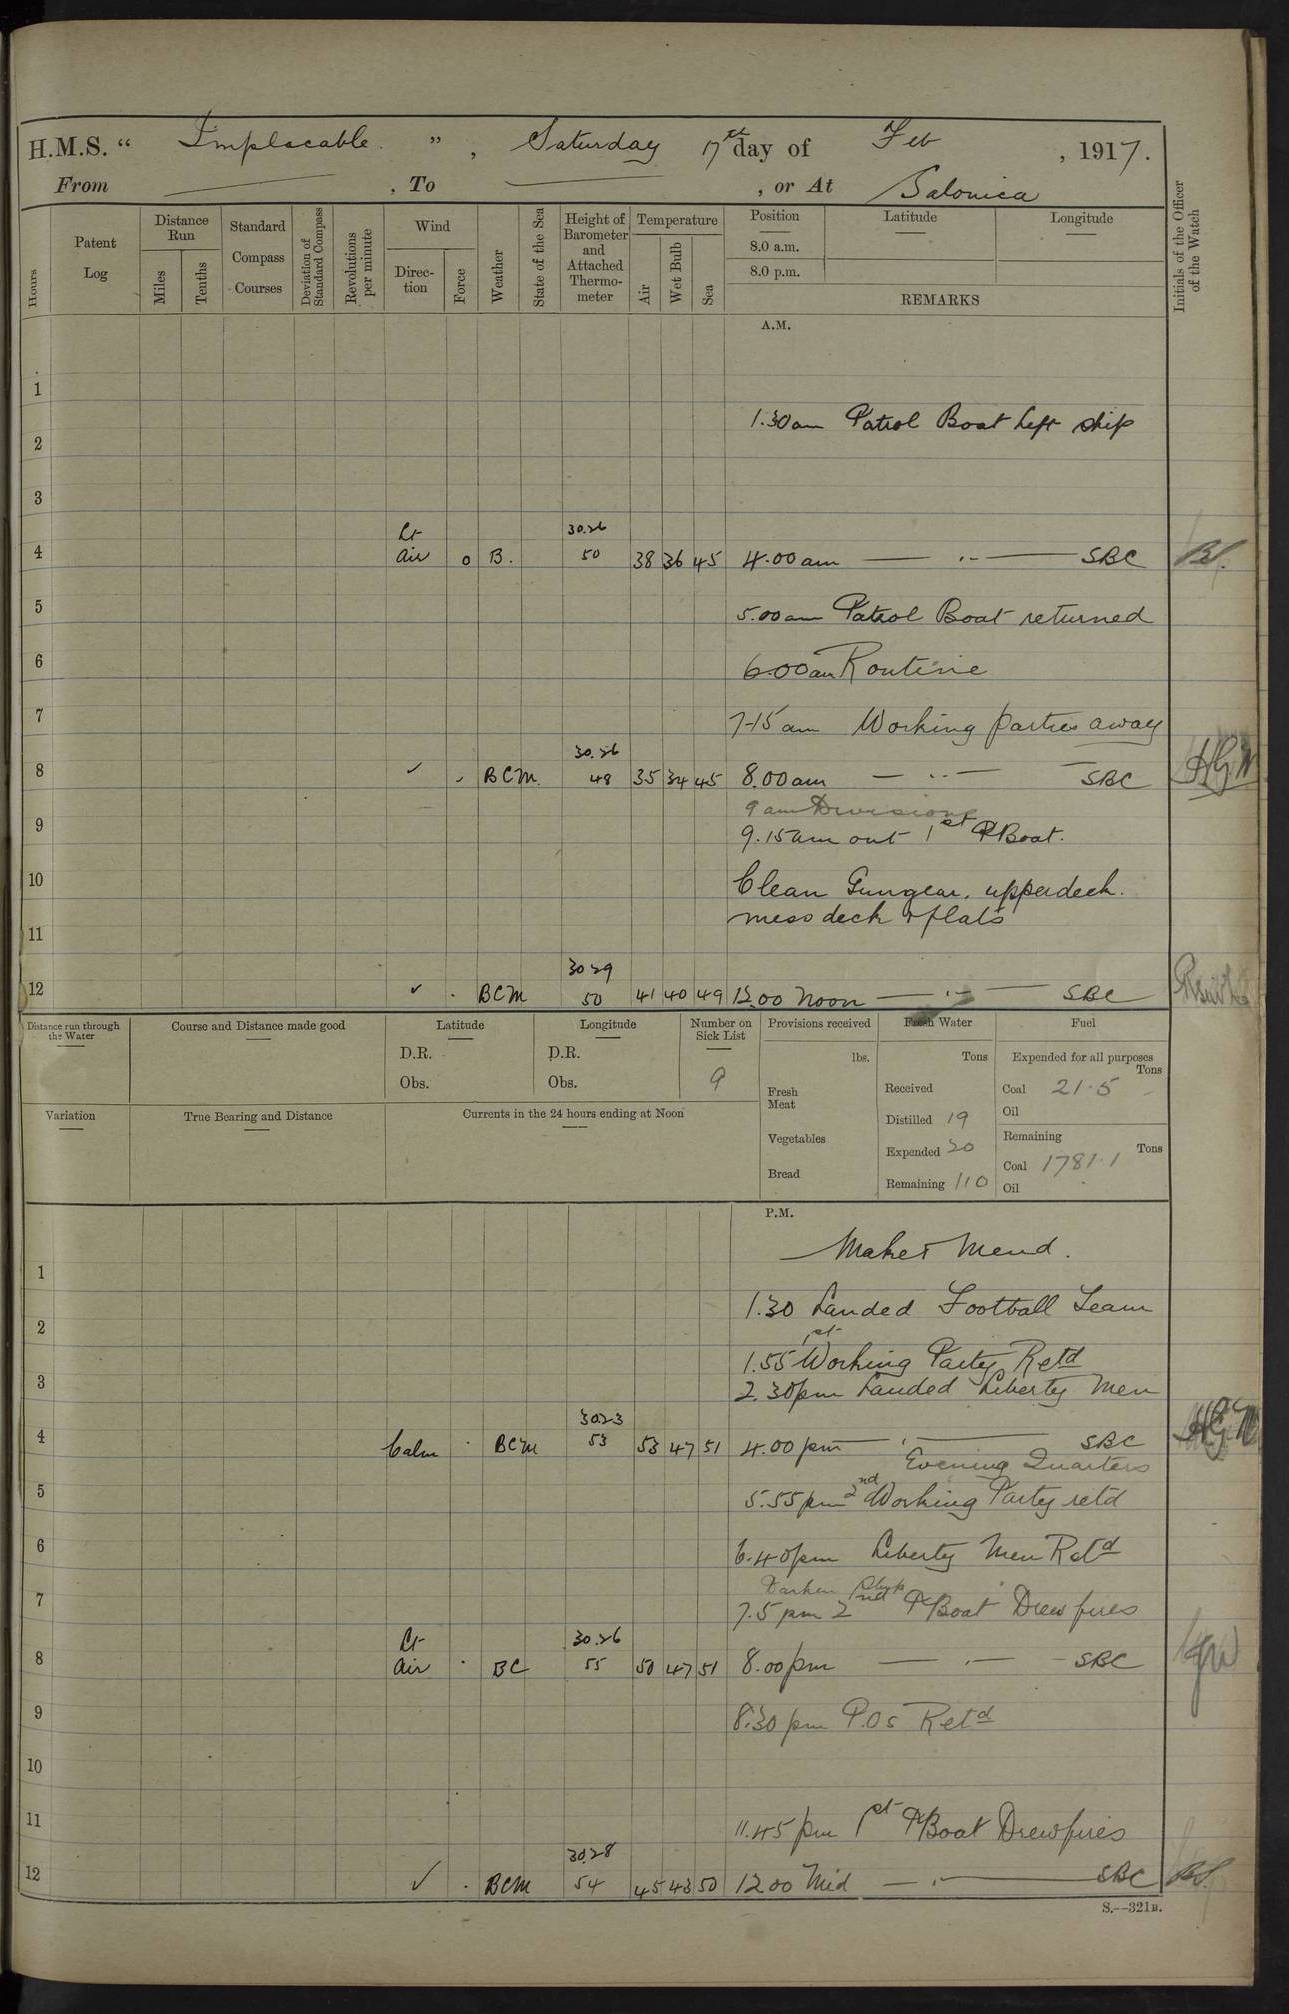 H.M.S. “ Implacable. ” , Saturday 17th day of Feb , 1917.
From ——— , To ——— , or At Salonica
Hours
Patent Log
Distance Run
Miles
Tenths
Standard Compass Courses
Deviation of Standard Compass
Revolutions per minute
Wind
Direc- tion
Force
Weather
State of the Sea
Height of Barometer and Attached Thermo- meter
Temperature
Air
Wet Bulb
Sea
Position
8.0 a.m.
8.0 p.m.
Latitude
Longitude
REMARKS
Initials of the Officer of the Watch
A.M.
1
1.30am Patrol Boat left ship
2
3
Lt 30.26
4 air 0 B. 50 38 36 45 4.00am — .. — SBC
5
5.00am Patrol Boat returned
6
6.00am Routine
7
7-15am Working parties away
30.26
8 ✓ . BCM 48 35 34 45 8.00am — .. — SBC HGW
9am Divisions
9
9.15am out 1st PBoat.
10
Clean Gungear, upperdeck.
messdeck & flats
11
30 29
12 ✓ . BCM 50 41 40 49 12.00 Noon — .. — SBC
Distance run through the Water
Course and Distance made good
Latitude
D.R.
Obs.
Longitude
D.R.
Obs.
Number on Sick List
9
Provisions received
lbs.
Fresh Meat
Vegetables
Bread
Fresh Water
Tons
Received
Distilled 19
Expended 20
Remaining 110
Fuel
Expended for all purposes
Tons
Coal 21.5
Oil
Remaining
Tons
Coal 1781.1
Oil
Variation
True Bearing and Distance
Currents in the 24 hours ending at Noon
P.M.
Make & Mend.
1
1.30 Landed Football Team
2
1.55 1st Working Party Retd
3
2.30pm Landed Liberty Men
30.23
4 Calm . BCM 53 53 47 51 4.00pm — . — SBC HGW
Evening Quarters
5
5.55pm 2nd Working Party retd
6
6.40pm Liberty Men Retd
Darken Ship
7
7.5 pm 2nd PBoat Drew fires
Lt 30.26
8 air . BC 55 50 47 51 8.00pm — .. — SBC
9
8.30 pm P.Os Retd
10
11
11.45 pm 1st PBoat Drewfires
30.28
12 ✓ . BCM 54 45 43 50 12.00 Mid — .. — SBC
S.--321B.